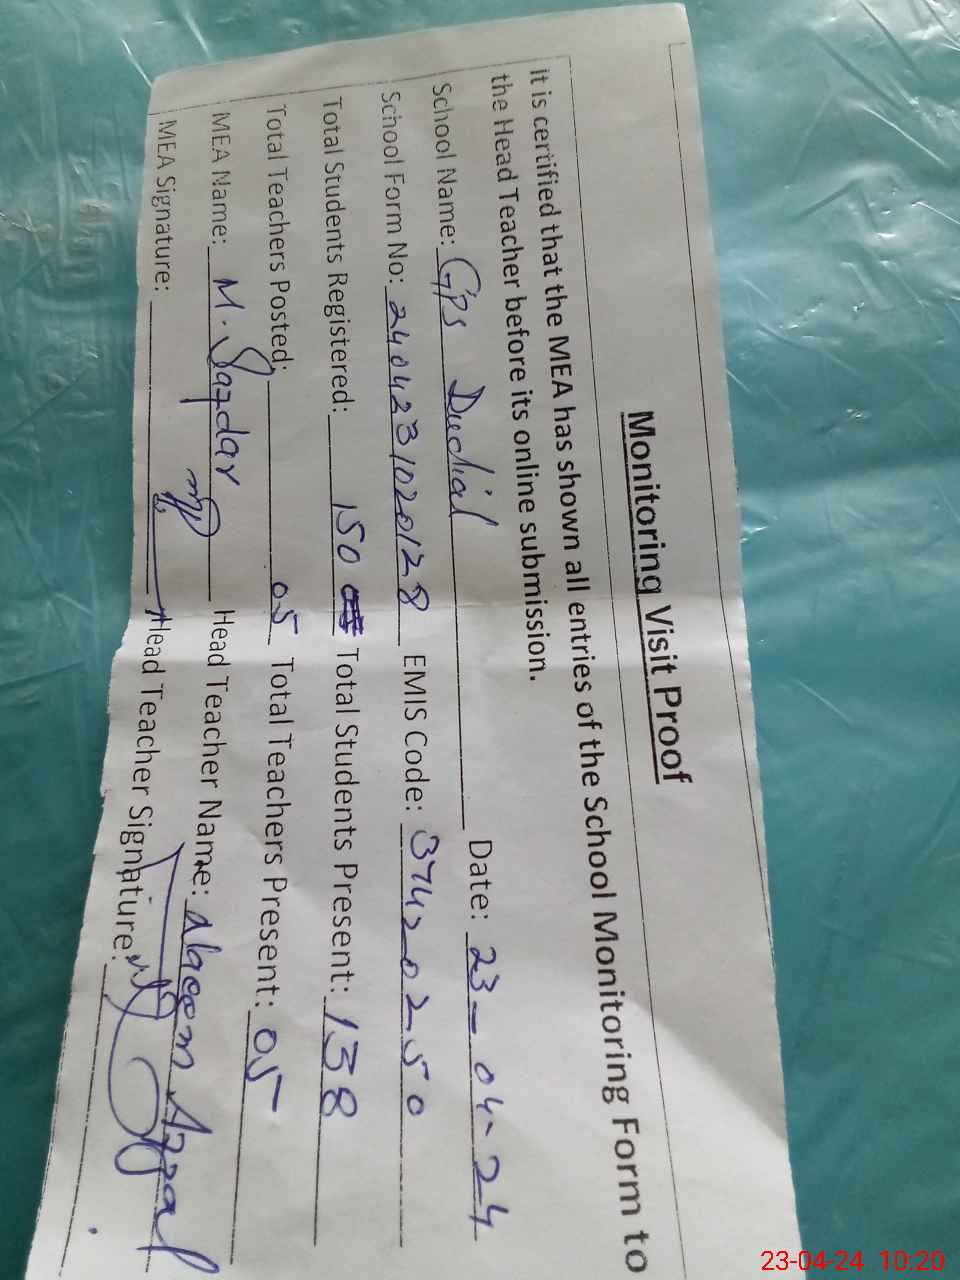 Monitoring Visit Proof
it is certified that the MEA has shown all entries of the School Monitoring Form to
the Head Teacher before its online submission.
School Name: Gps Duclial Date: 23-04-24
School Form No: 2404231020128 EMIS Code: 37420250
Total Students Registered: 150 Total Students Present: 138
Total Teachers Posted: 05 Total Teachers Present: 05
MEA Name: M. Safdar Head Teacher Name: Afzal
MEA Signature: Head Teacher Signature:
23-04-24 10:20